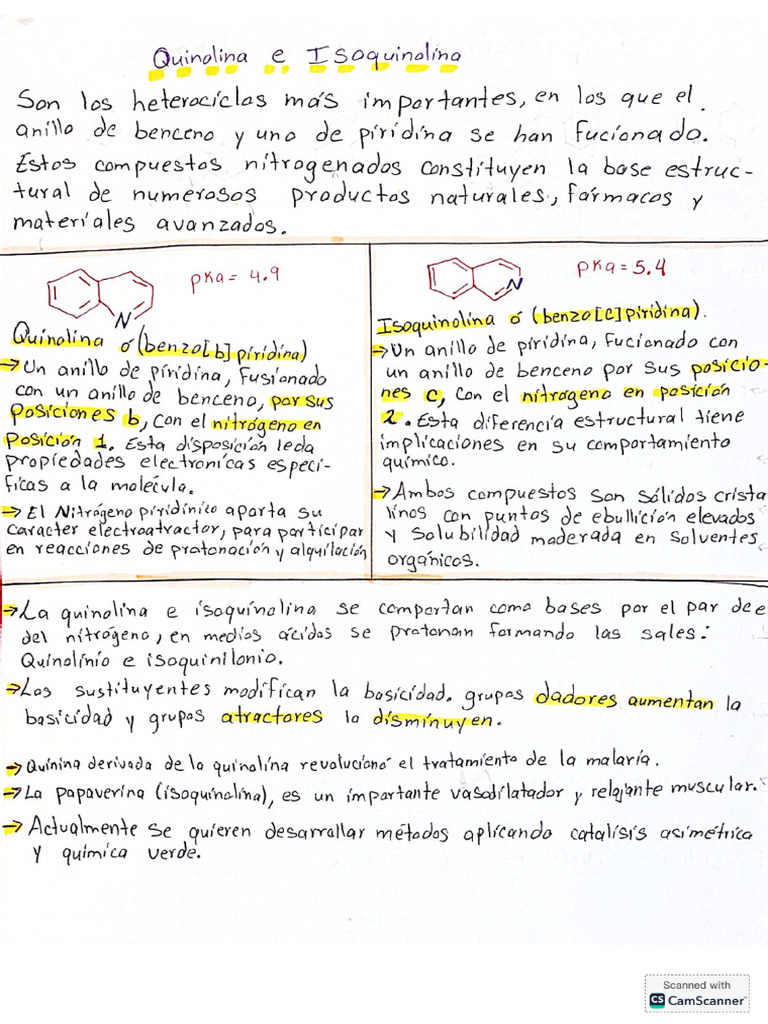 Quinolina e Isoquinolina
Son los heterociclos más importantes, en los que el
anillo de benceno y uno de piridina se han fucionado.
Estos compuestos nitrogenados constituyen la base estruc-
tural de numerosos productos naturales, fármacos y
materiales avanzados.
pKa = 4.9
N
Quinolina ó (benzo[b]piridina)
→ Un anillo de piridina, fusionado
con un anillo de benceno, por sus
posiciones b, con el nitrógeno en
posición 1. Esta disposición le da
propiedades electronicas especí-
ficas a la molécula.
→ El Nitrógeno piridínico aporta su
caracter electroatractor, para participar
en reacciones de protonación y alquilación
pKa = 5.4
N
Isoquinolina ó (benzo[c]piridina).
→ Un anillo de piridina, fucionado con
un anillo de benceno por sus posicio-
nes c, con el nitrógeno en posición
2. Esta diferencia estructural tiene
implicaciones en su comportamiento
químico.
→ Ambos compuestos son sólidos crista
linos con puntos de ebullición elevados
y solubilidad moderada en solventes
orgánicos.
→ La quinolina e isoquinolina se comportan como bases por el par de e
del nitrógeno, en medios ácidos se protonan formando las sales:
Quinolínio e isoquinilonio.
→ Los sustituyentes modifican la basicidad. grupos dadores aumentan la
basicidad y grupos atractores la disminuyen.
→ Quinina derivada de la quinolina revolucionó el tratamiento de la malaria.
→ La papaverina (isoquinolina), es un importante vasodilatador y relajante muscular.
→ Actualmente se quieren desarrollar métodos aplicando catalisis asimétrica
y química verde.
Scanned with
CS CamScanner